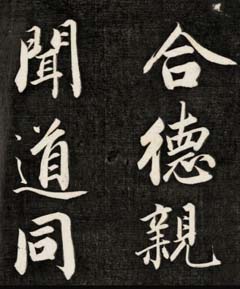 合德親
聞道同